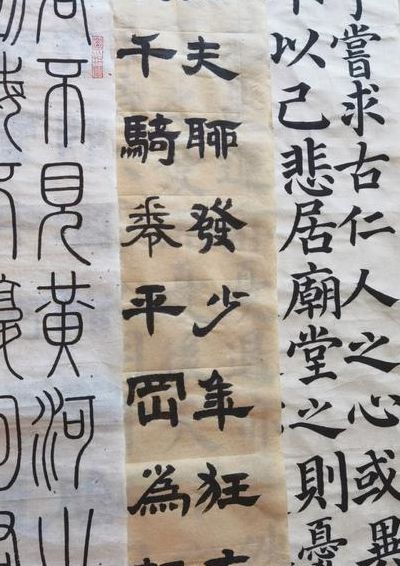 嘗求古仁人之心或異
以己悲居廟堂之則憂
夫聊發少年狂
千騎卷平岡為
君不見黃河之
海不復回